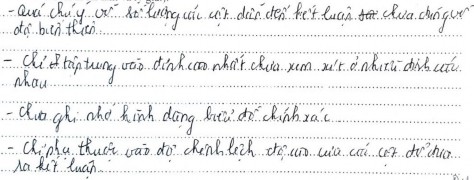 - Quá chú ý về số lượng các cột dẫn đến kết luận chưa đúng về
độ biến thiên
- Chỉ tập trung vào đỉnh cao nhất chưa xem xét ở nhiều đỉnh
nhau
- Chưa ghi nhớ hình dạng biểu đồ chính xác
- Chỉ phụ thuộc vào độ chênh lệch độ cao của các cột để đưa
ra kết luận